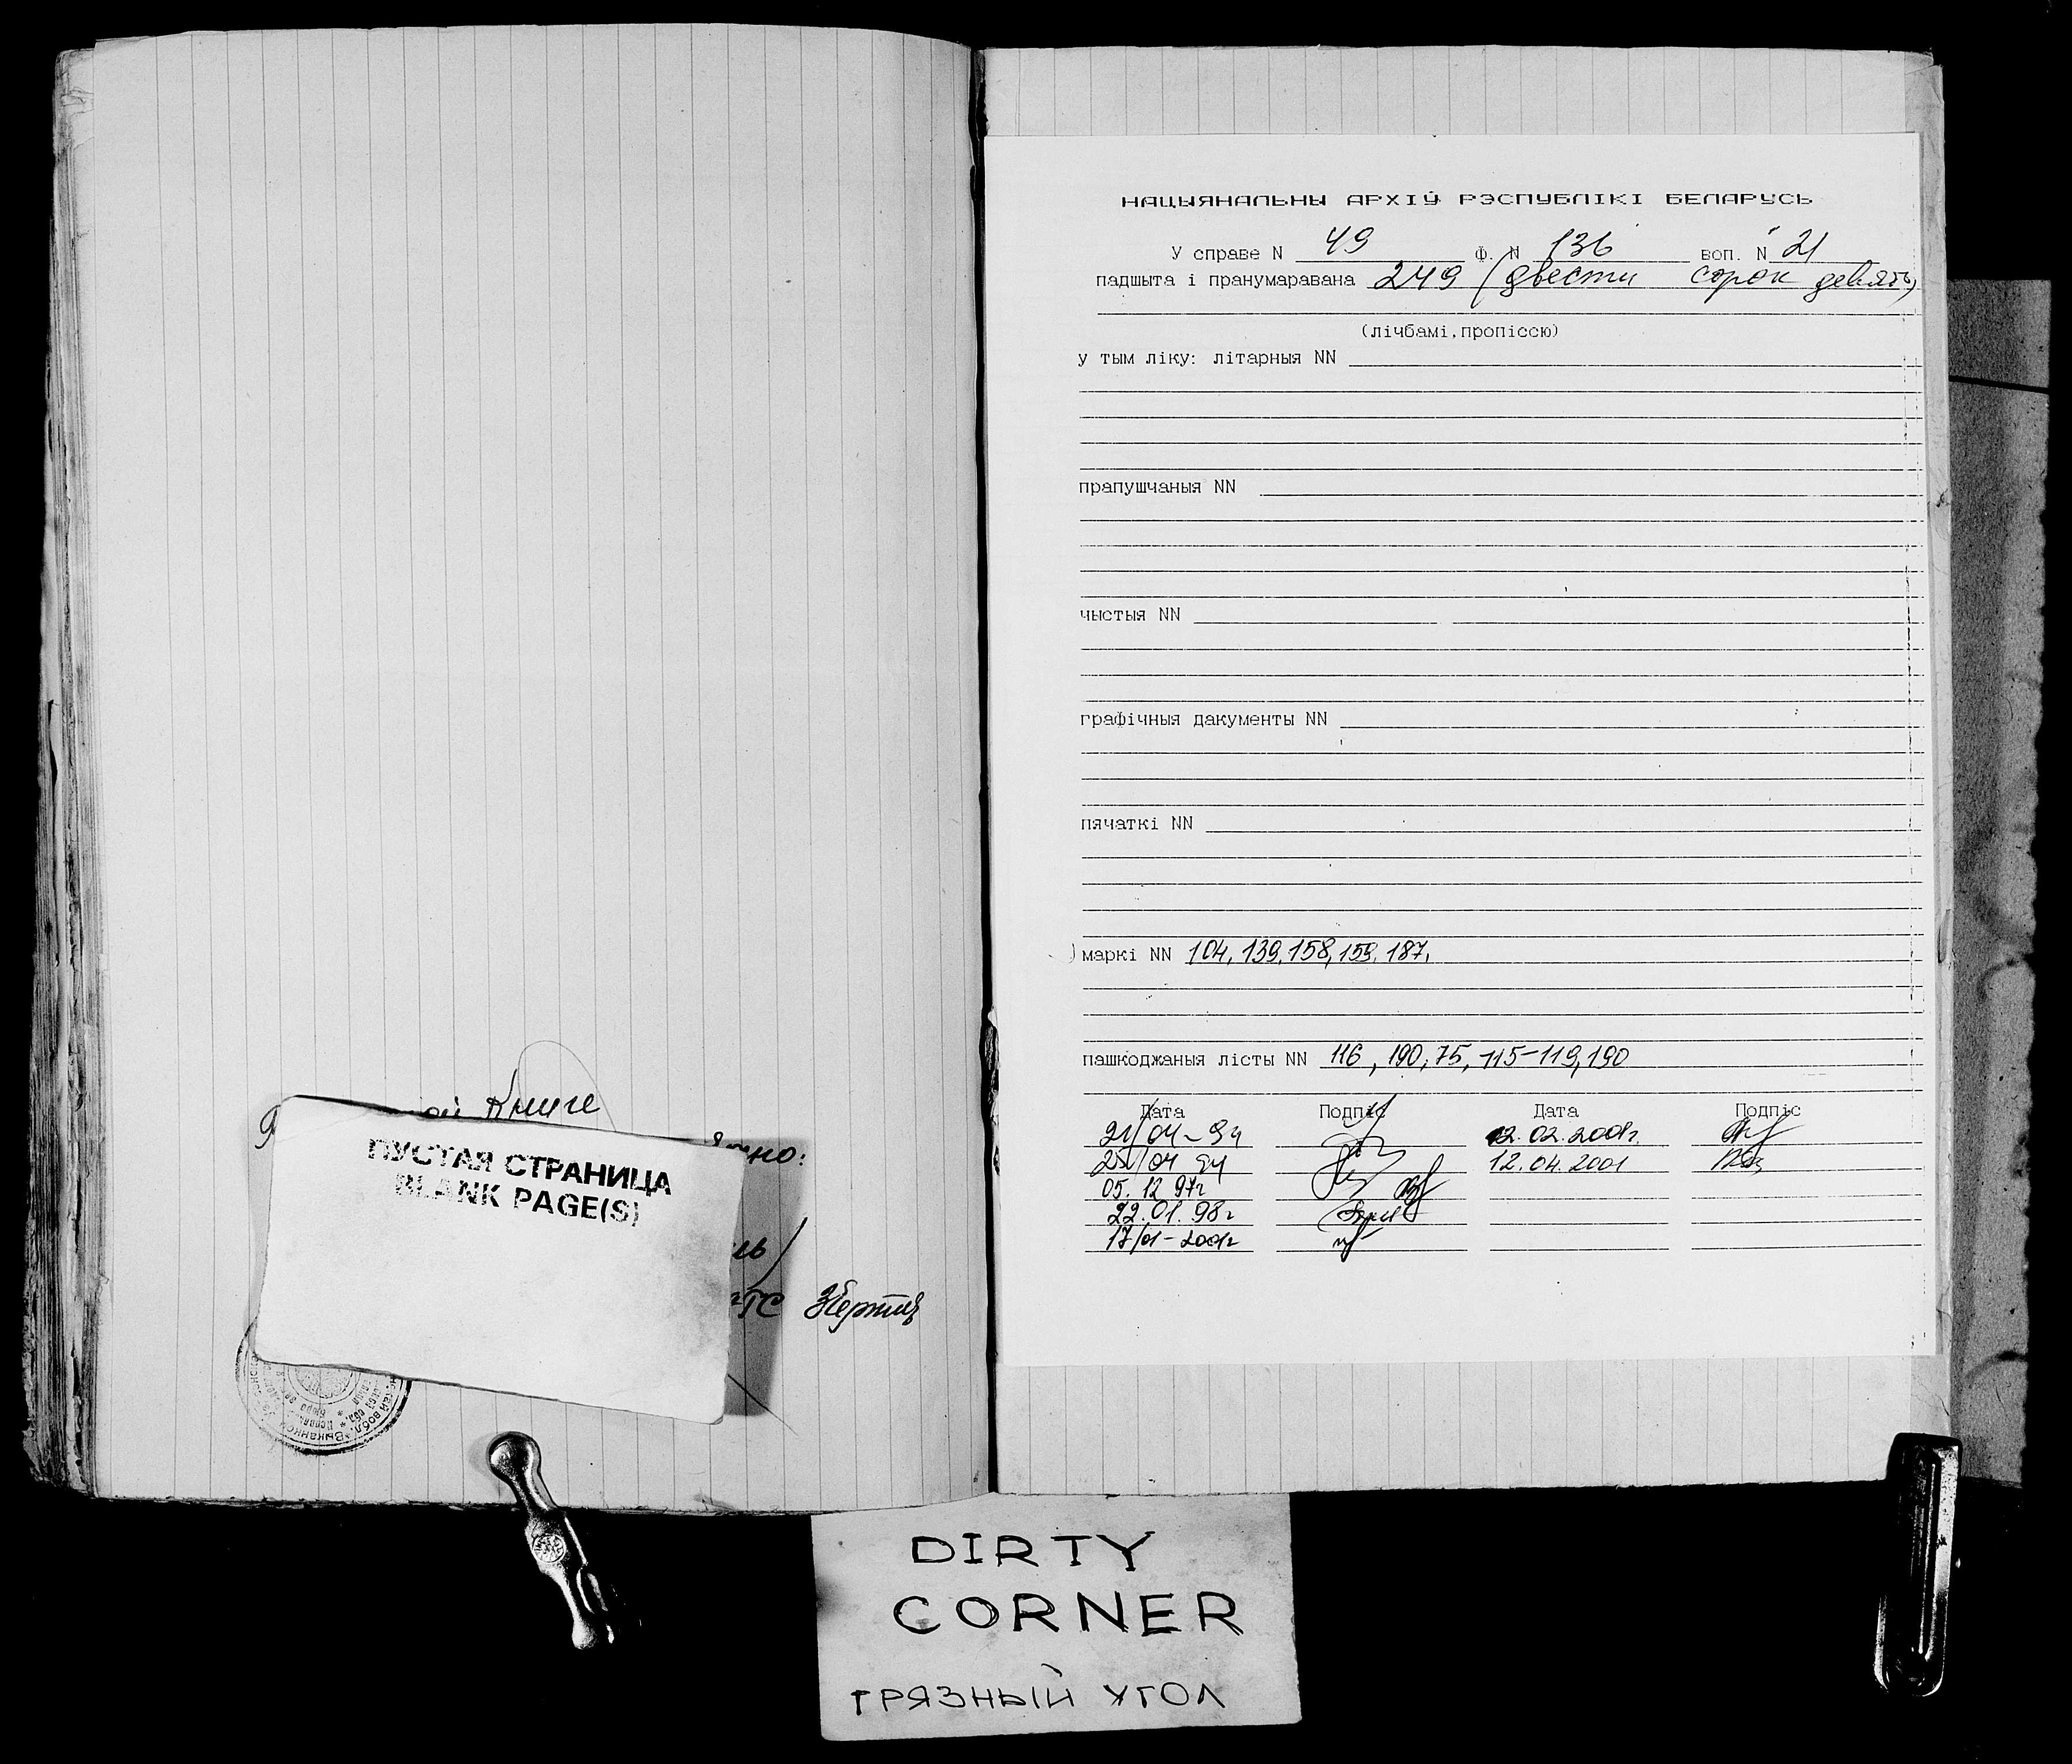 ой Книге
ПУСТАЯ СТРАНИЦА
BLANK PAGE(S)
НАЦЫЯНАЛЬНЫ АРХІЎ РЭСПУБЛІКІ БЕЛАРУСЬ
У справе N 49 ф. N 136 воп. N 21
падшыта і пранумаравана 249 (двести сорок девять)
(лічбамі,пропіссю)
у тым ліку: літарныя NN
прапушчаныя NN
чыстыя NN
графічныя дакументы NN
пячаткі NN
маркі NN 104, 139, 158, 159, 187,
пашкоджаныя лісты NN 116, 190, 75, 115-119, 190
Дата Подпіс Дата Подпіс
21/04-94 12.02.2001г.
25/04 94 12.04.2001
05.12 97г
22.01.98г
17/01-2001г
DIRTY
CORNER
ГРЯЗНЫЙ УГОЛ